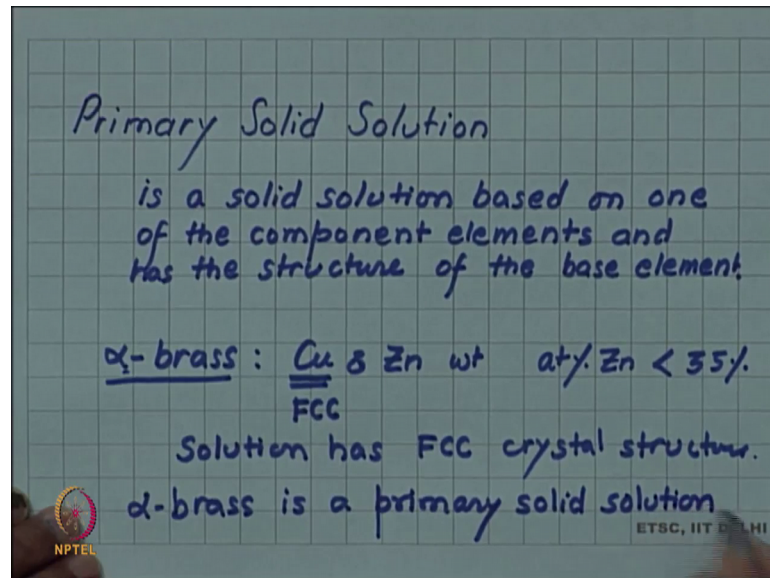 Primary Solid Solution
is a solid solution based on one
of the component elements and
has the structure of the base element.
α-brass : Cu & Zn wt at% Zn < 35%.
FCC
Solution has FCC crystal structure.
α-brass is a primary solid solution
ETSC, IIT DELHI
NPTEL